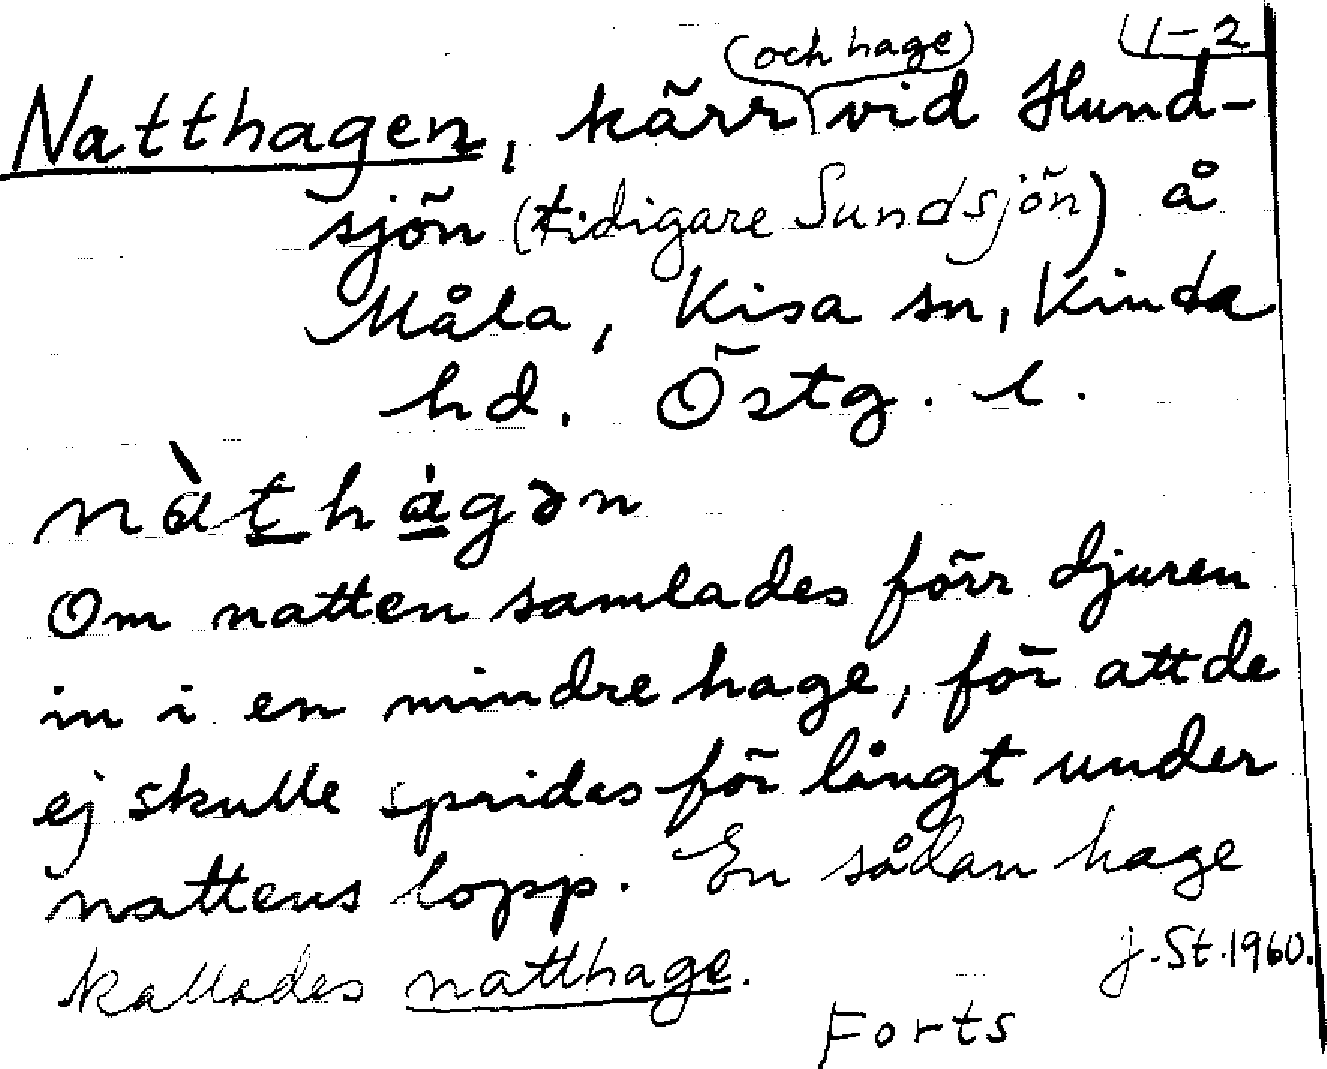 1-2
Natthagen, kärr (och hage) vid Hund-
sjön (tidigare Sundsjön) å
Måla, Kisa sn, Kinda
hd. Östg. l.
nàthágən
Om natten samlades förr djuren
in i en mindre hage, för att de
ej skulle spridas för långt under
nattens lopp. En sådan hage
kallades natthage.
J. St. 1960.
Forts